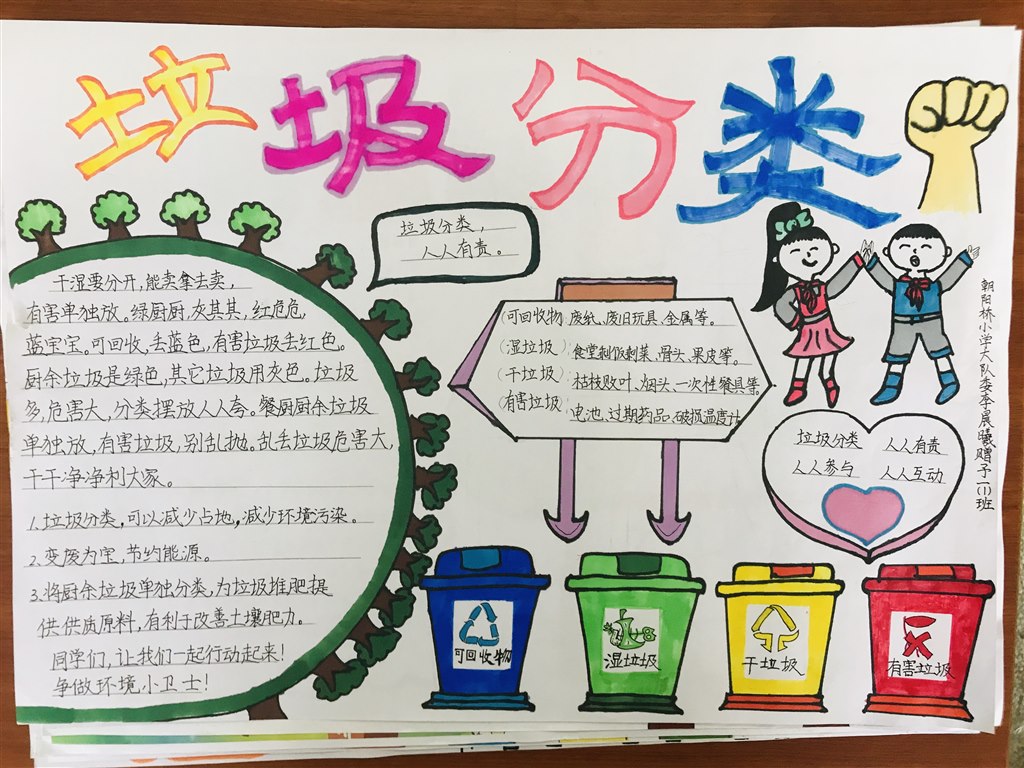 垃圾分类
垃圾分类，
人人有责。
干湿要分开，能卖拿去卖，
有害单独放。绿厨厨，灰其其，红危危，
蓝宝宝。可回收，丢蓝色，有害垃圾丢红色。
厨余垃圾是绿色，其它垃圾用灰色。垃圾
多，危害大，分类摆放人人夸。餐厨厨余垃圾
单独放，有害垃圾，别乱抛。乱丢垃圾危害大，
干干净净利大家。
1.垃圾分类，可以减少占地，减少环境污染。
2.变废为宝，节约能源。
3.将厨余垃圾单独分类，为垃圾堆肥提
供供质原料，有利于改善土壤肥力。
同学们，让我们一起行动起来！
争做环境小卫士！
（可回收物：废纸、废旧玩具、金属等。
（湿垃圾）：食堂剩饭剩菜、骨头、果皮等。
（干垃圾）：枯枝败叶、烟头、一次性餐具等。
（有害垃圾：电池、过期药品、破损温度计
垃圾分类 人人有责
人人参与 人人互动
朝阳桥小学大队委李晨曦赠予二(1)班
可回收物
湿垃圾
干垃圾
有害垃圾